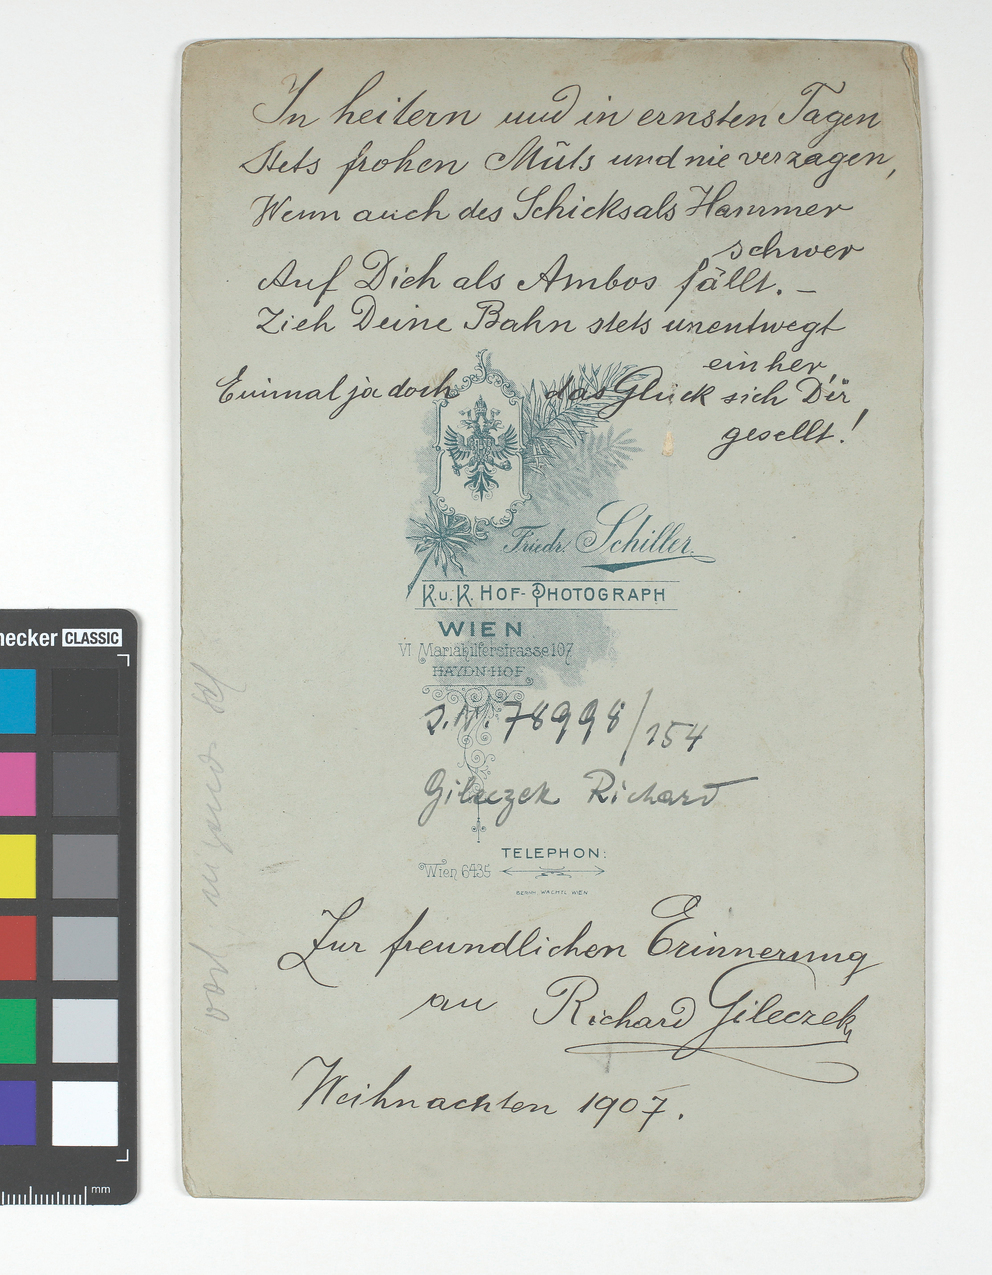 In heitern und in ernsten Tagen
Stets frohen Mūts und nie verzagen,
Wenn auch des Schicksals Hammer
schwer
Auf Dich als Ambos fällt. –
Zieh Deine Bahn stets unentwegt
einher,
Einmal ja doch das Glück sich Dir
gesellt!
Friedr. Schiller
K.u.K. HOF-PHOTOGRAPH
WIEN
VI Mariahilferstrasse 107
HAYDN-HOF.
J.N. 78998/154
Gileczek Richard
TELEPHON:
Wien 6435
BERNH. WACHTL WIEN
Zur freundlichen Erinnerung
an Richard Gileczek
Weihnachten 1907.
hecker CLASSIC
mm